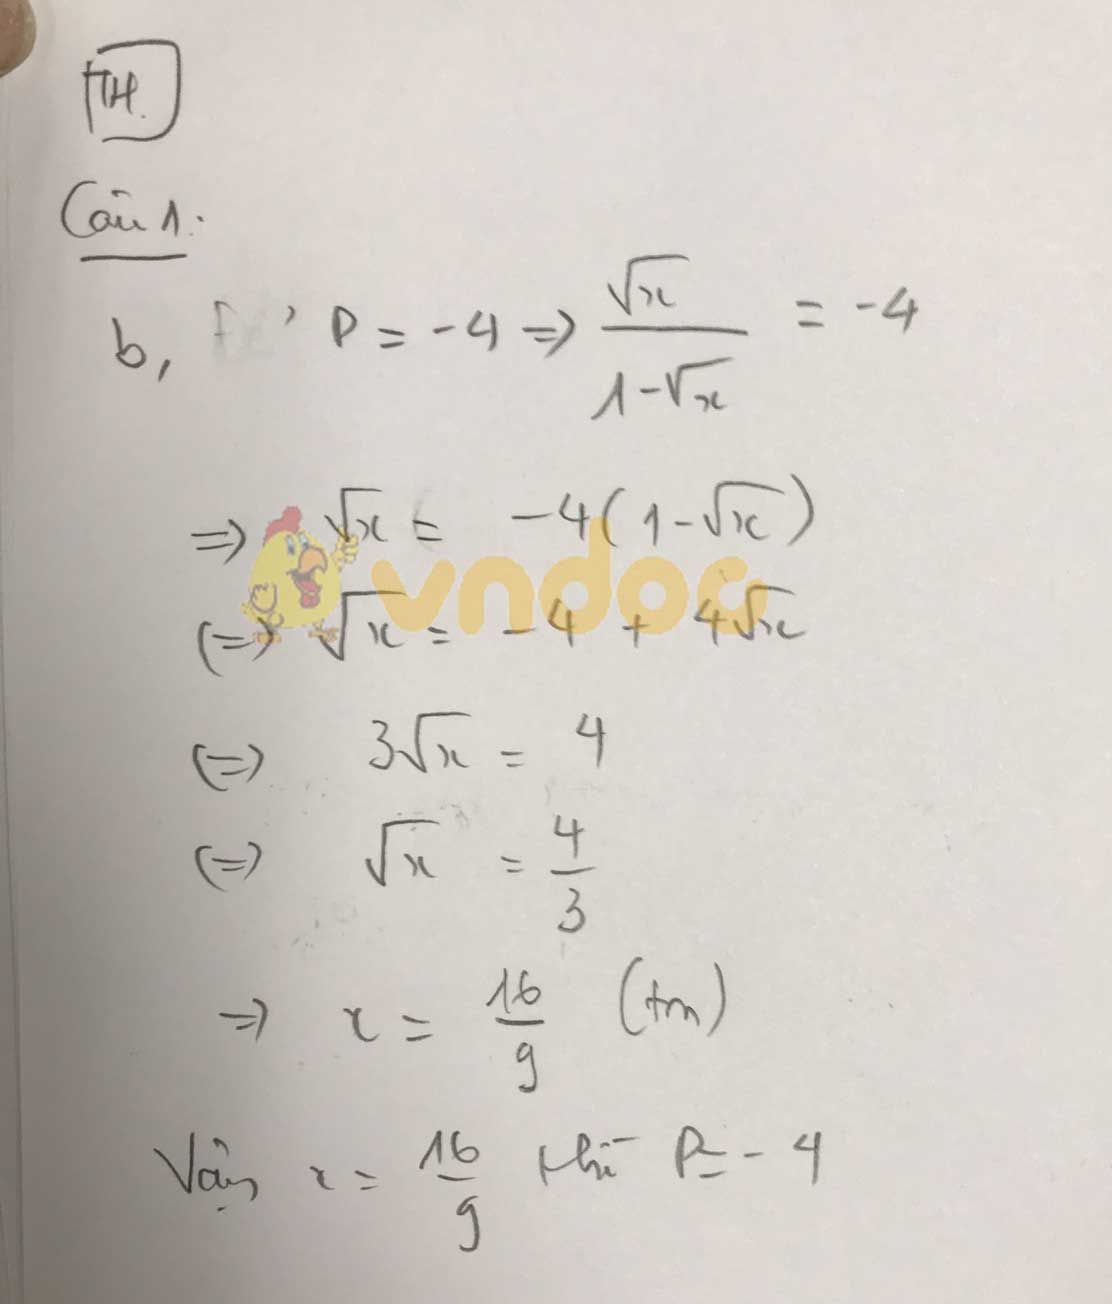 TH.
Câu 1.
b, P = -4 => √x / (1-√x) = -4
=> √x = -4(1-√x)
(=) √x = -4 + 4√x
vndoc
(=) 3√x = 4
(=) √x = 4/3
=> x = 16/9 (tm)
Vậy x = 16/9 thì P = -4